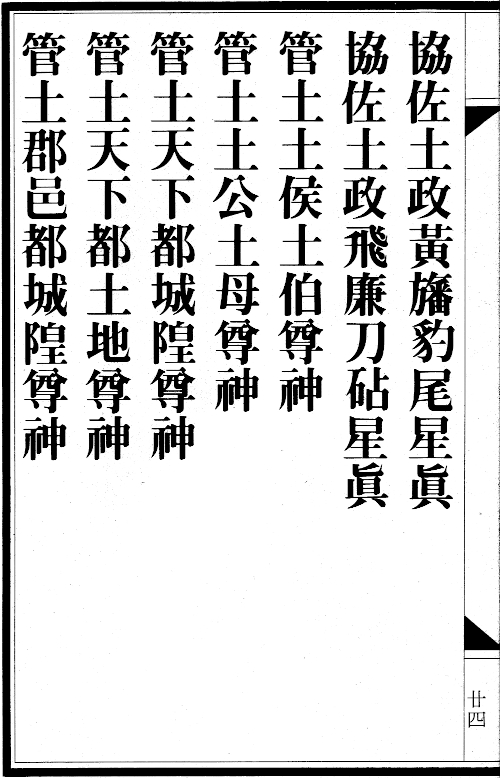 協佐土政黃旛豹尾星眞
協佐土政飛廉刀砧星眞
管土土侯土伯尊神
管土土公土母尊神
管土天下都城隍尊神
管土天下都土地尊神
管土郡邑都城隍尊神
廿四